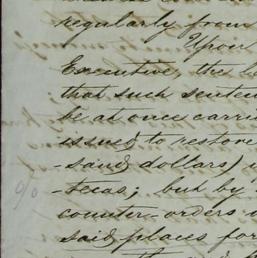 regularly from
Upon
Executive, the
that such senten
be at once carri
issued to restore
-sand dollars)
-tecas; but by
counter-orders
said places for